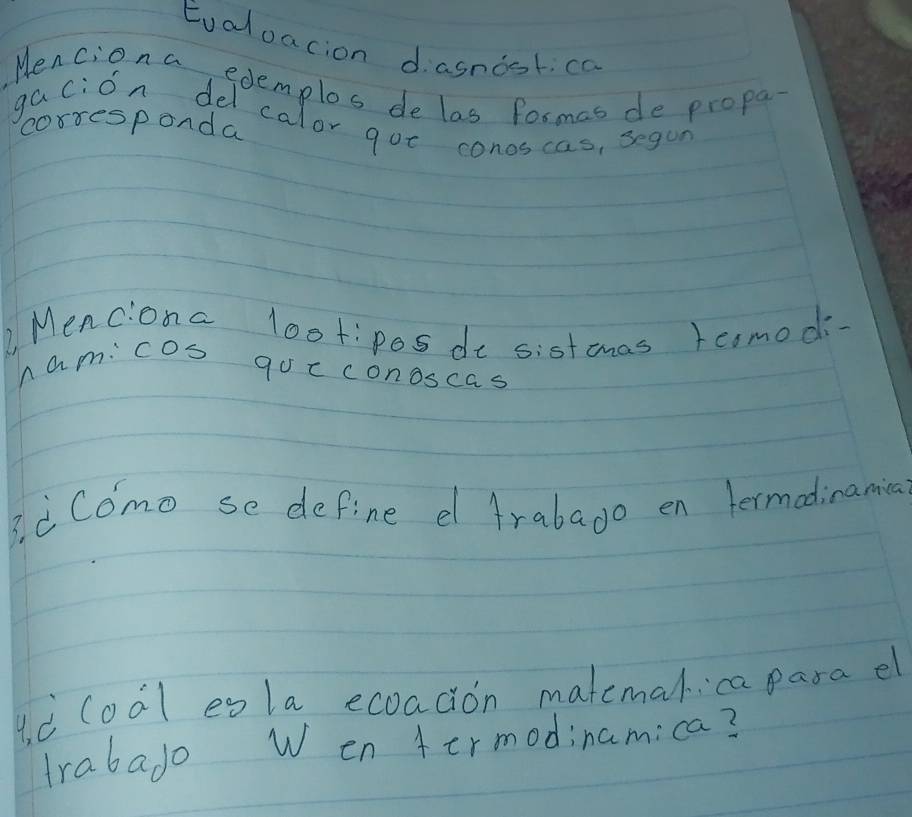 Evaloacion diagnóstica
Menciona ejemplos de las formas de propa-
gación del calor que conoscas, segun
corresponda
2. Menciona los tipos de sistemas termodi-
namicos que conoscas
3. ¿Cómo se define el trabajo en termodinamica?
4. ¿Coál es la ecoación matematica para el
trabajo W en termodinamica?